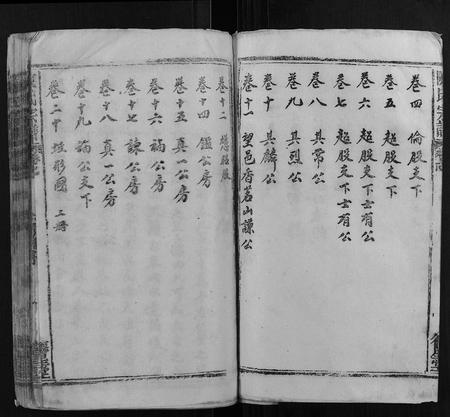 卷四 倫股支下
卷五 超股支下
卷六 超股支下士有公
卷七 超股支下士有公
卷八 其常公
卷九 其烈公
卷十 其麟公
卷十一 望邑府茗山謙公
卷十二
卷十四 鑑公房
卷十五 真一公房
卷十六 福公房
卷十七 諫公房
卷十八 真一公房
卷十九 福公支下
卷二十 坟形圖 二冊